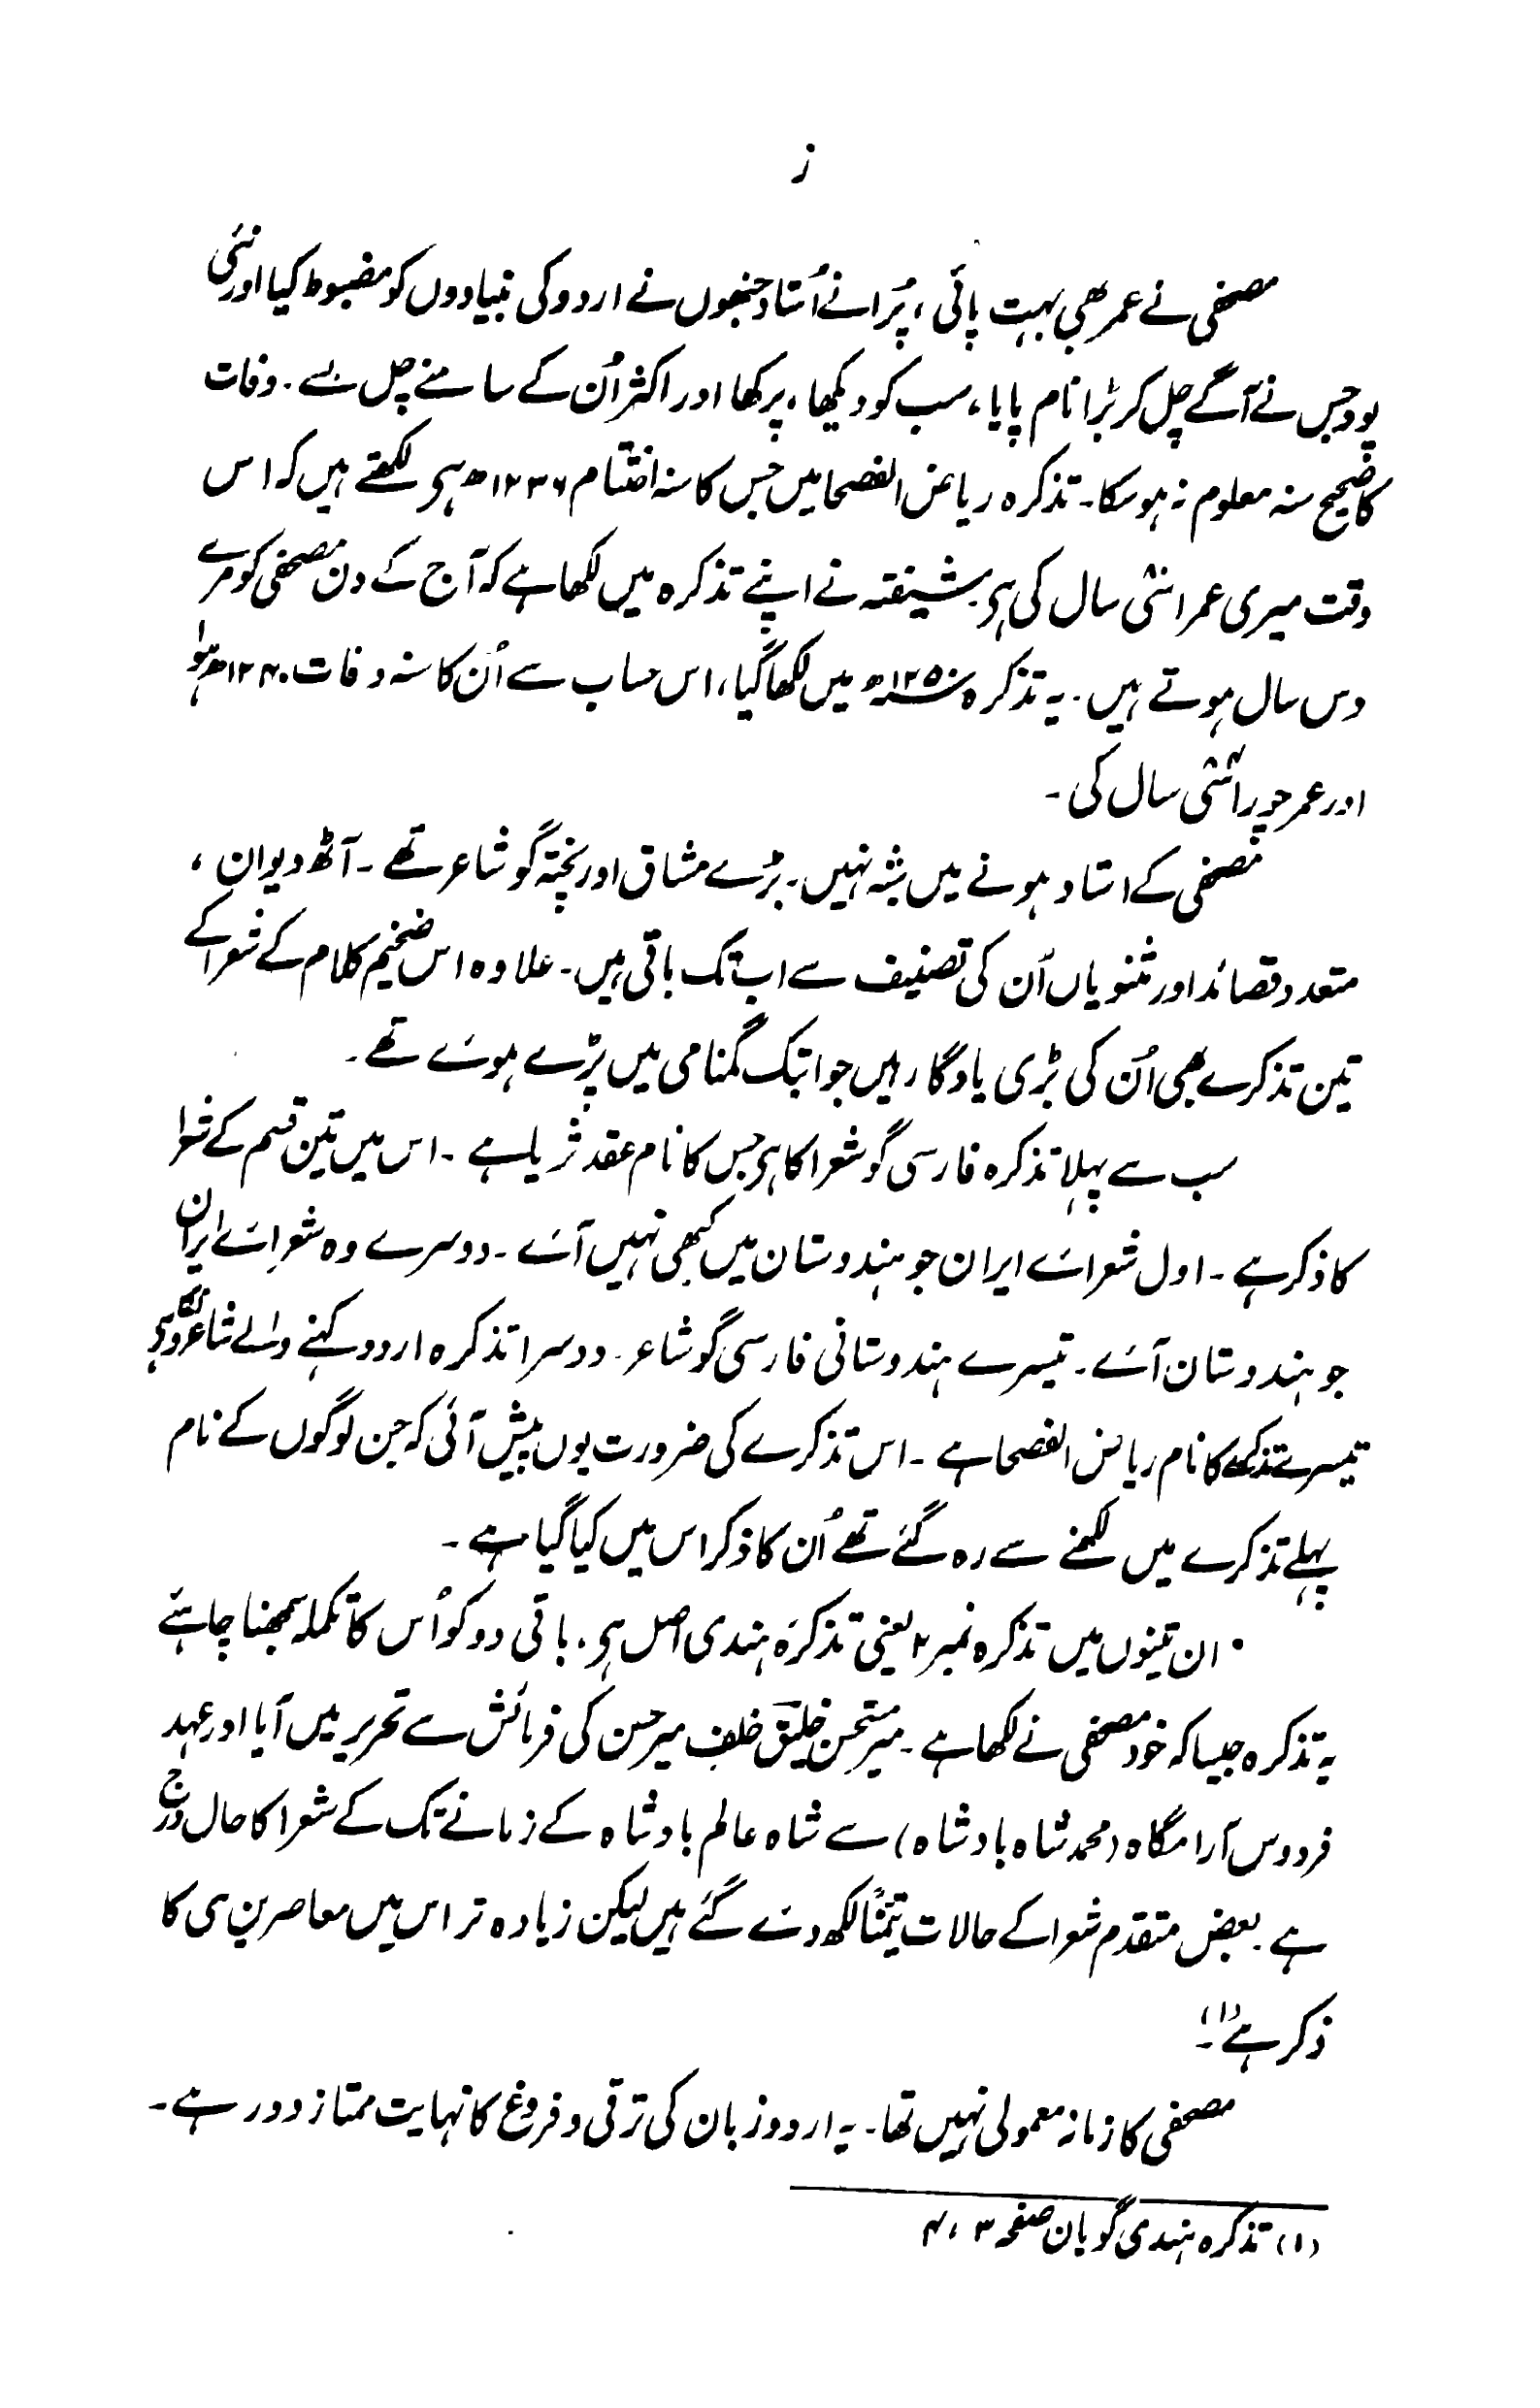 ز
مصحفی نے عمر بھی بہت پائی، پُرانے اُستاد جنھوں نے اردو کی بنیادوں کو مضبوط کیا اور نئی
پود جس نے آگے چل کر بڑا نام پایا، سب کو دیکھا، پرکھا اور اکثر اُن کے سامنے چل بسے۔ وفات
کا صحیح سنہ معلوم نہ ہو سکا۔ تذکرہ ریاض الفصحا میں جس کا سنہ اختتام ۱۲۳۶ھ ہی لکھتے ہیں کہ اس
وقت میری عمر اسّی ۸۰ سال کی ہی۔ شیفتہ نے اپنے تذکرہ میں لکھا ہے کہ آج کے دن مصحفی کو مرے
دس سال ہوتے ہیں۔ یہ تذکرہ ۱۲۵۰ھ میں لکھا گیا، اس حساب سے اُن کا سنہ وفات ۱۲۴۰ھ ہوا
اور عمر چوراسّی ۸۴ سال کی۔
مصحفی کے استاد ہونے میں شبہ نہیں۔ بڑے مشاق اور پختہ گو شاعر تھے۔ آٹھ دیوان،
متعدد قصائد اور مثنویاں اُن کی تصنیف سے اب تک باقی ہیں۔ علاوہ اس ضخیم کلام کے شعرا کے
تین تذکرے بھی اُن کی بڑی یادگار ہیں جو ابتک گمنامی میں پڑے ہوئے تھے۔
سب سے پہلا تذکرہ فارسی گو شعرا کا ہی جس کا نام عقد ثریا ہے۔ اس میں تین قسم کے شعرا
کا ذکر ہے۔ اول شعرائے ایران جو ہندوستان میں کبھی نہیں آئے۔ دوسرے وہ شعرائے ایران
جو ہندوستان آئے۔ تیسرے ہندوستانی فارسی گو شاعر۔ دوسرا تذکرہ اردو کہنے والے شاعروں کا ہی
تیسرے تذکرے کا نام ریاض الفصحا ہے۔ اس تذکرے کی ضرورت یوں پیش آئی کہ جن لوگوں کے نام
پہلے تذکرے میں لکھنے سے رہ گئے تھے اُن کا ذکر اس میں کیا گیا ہے۔
ان تینوں میں تذکرہ نمبر ۲ یعنی تذکرۂ ہندی اصل ہی۔ باقی دو کو اُس کا تکملہ سمجھنا چاہئے
یہ تذکرہ جیسا کہ خود مصحفی نے لکھا ہے۔ میر مستحسن خلیق خلف میر حسن کی فرمائش سے تحریر میں آیا اور عہد
فردوس آرامگاہ (محمد شاہ بادشاہ) سے شاہ عالم بادشاہ کے زمانے تک کے شعرا کا حال درج
ہے۔ بعض متقدم شعرا کے حالات تیمّناً لکھ دئے گئے ہیں لیکن زیادہ تر اس میں معاصرین ی کا
ذکر ہے (۱)۔
مصحفی کا زمانہ معمولی نہیں تھا۔ یہ اردو زبان کی ترقی و فروغ کا نہایت ممتاز دور ہے۔
(۱) تذکرہ ہندی گویان صفحہ ۳، ۴